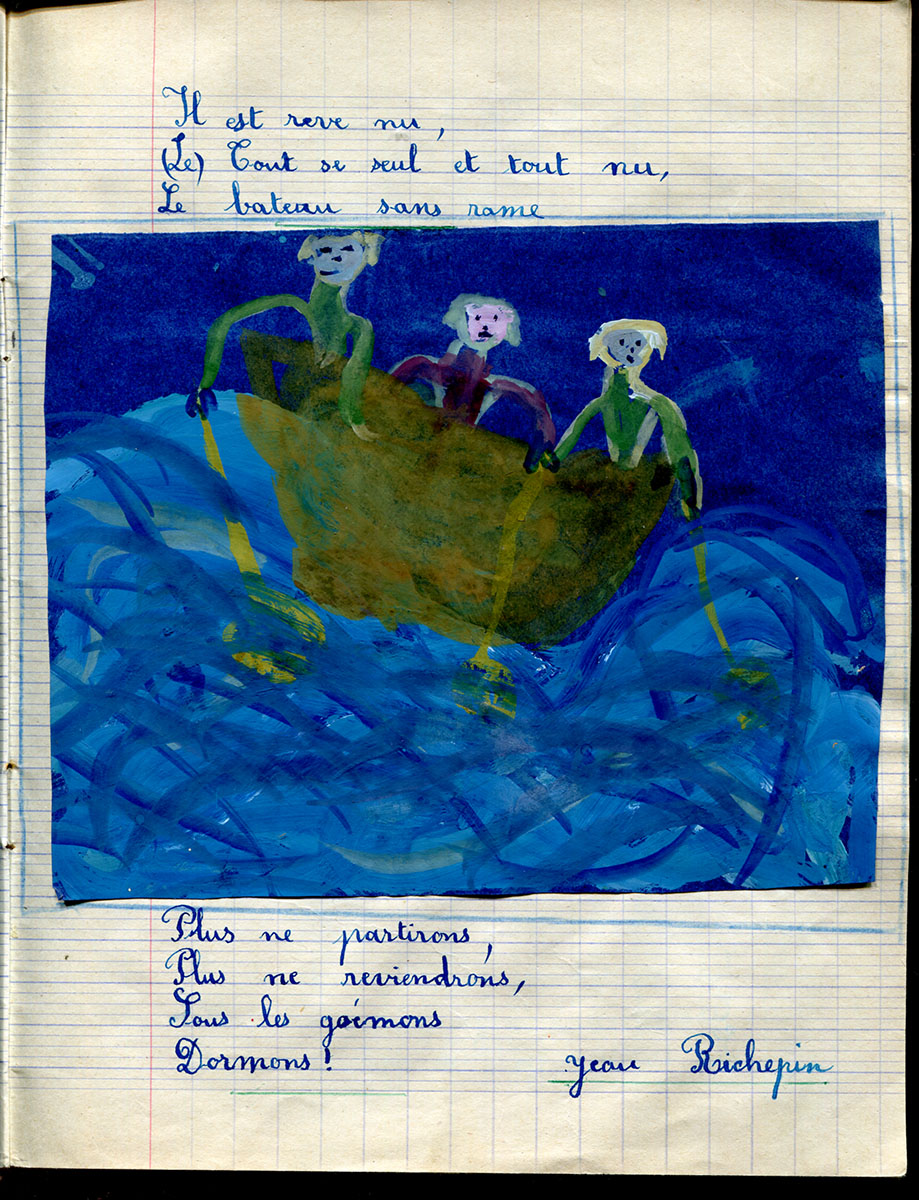 Il est reve nu,
(Le) Tout se seul et tout nu,
Le bateau sans rame
Plus ne partirons,
Plus ne reviendrons,
Sous les goémons
Dormons !
Jean Richepin